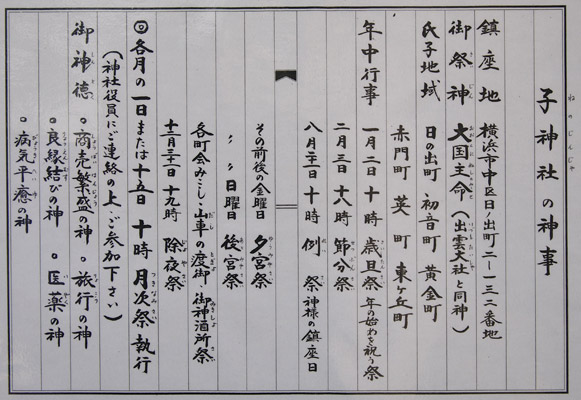 子神社の神事
ねのじんじゃ
鎮座地 横浜市中区日ノ出町二ー一三二番地
御祭神 大国主命(出雲大社と同神)
氏子地域 日の出町 初音町 黄金町
赤門町 英町 東ヶ丘町
年中行事 一月二日十時 歳旦祭 年の始めを祝う祭
二月三日十八時 節分祭
八月二十一日十時 例祭 神様の鎮座日
その前後の金曜日 夕宮祭
〃 日曜日 後宮祭
各町会みこし・山車の渡御 御神酒所祭
十二月三十一日十九時 除夜祭
◎各月の一日または十五日 十時 月次祭執行
(神社役員にご連絡の上、ご参加下さい)
御神徳 ◦商売繁盛の神 ◦旅行の神
◦良縁結びの神 ◦医薬の神
◦病気平癒の神